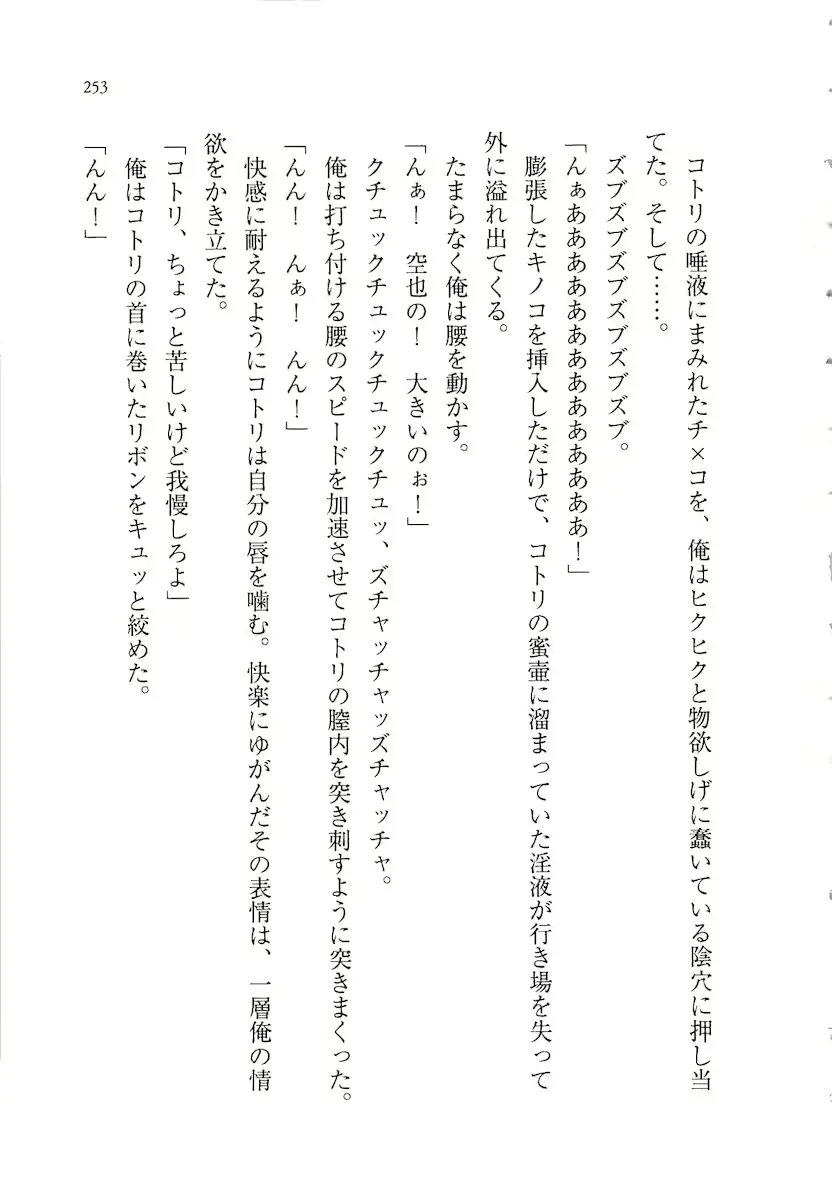 253
コトリの唾液にまみれたチ×コを、俺はヒクヒクと物欲しげに蠢いている陰穴に押し当
てた。そして……。
ズブズブズブズブズブズブ。
「んぁあああああああああああああああ！」
膨張したキノコを挿入しただけで、コトリの蜜壷に溜まっていた淫液が行き場を失って
外に溢れ出てくる。
たまらなく俺は腰を動かす。
「んぁ！　空也の！　大きいのぉ！」
クチュックチュックチュックチュッ、ズチャッチャッズチャッチャ。
俺は打ち付ける腰のスピードを加速させてコトリの膣内を突き刺すように突きまくった。
「んん！　んぁ！　んん！」
快感に耐えるようにコトリは自分の唇を噛む。快楽にゆがんだその表情は、一層俺の情
欲をかき立てた。
「コトリ、ちょっと苦しいけど我慢しろよ」
俺はコトリの首に巻いたリボンをキュッと絞めた。
「んん！」